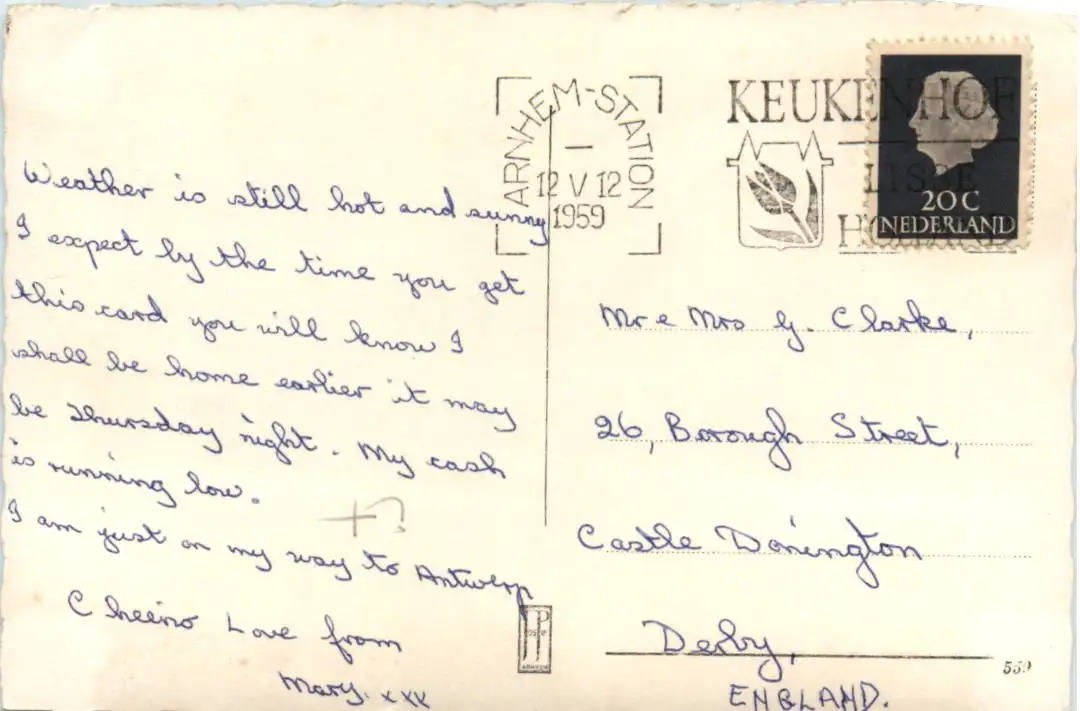 Weather is still hot and sunny
I expect by the time you get
this card you will know I
shall be home earlier it may
be Thursday night. My cash
is running low.
I am just on my way to Antwerp
Cheerio Love from
Mary. xxx
+?
ARNHEM-STATION
12 V 12
1959
KEUKENHOF
LISSE
HOLLAND
20 C
NEDERLAND
Mr e Mrs G. Clarke,
26, Borough Street,
Castle Donington
Derby,
ENGLAND.
JP
559